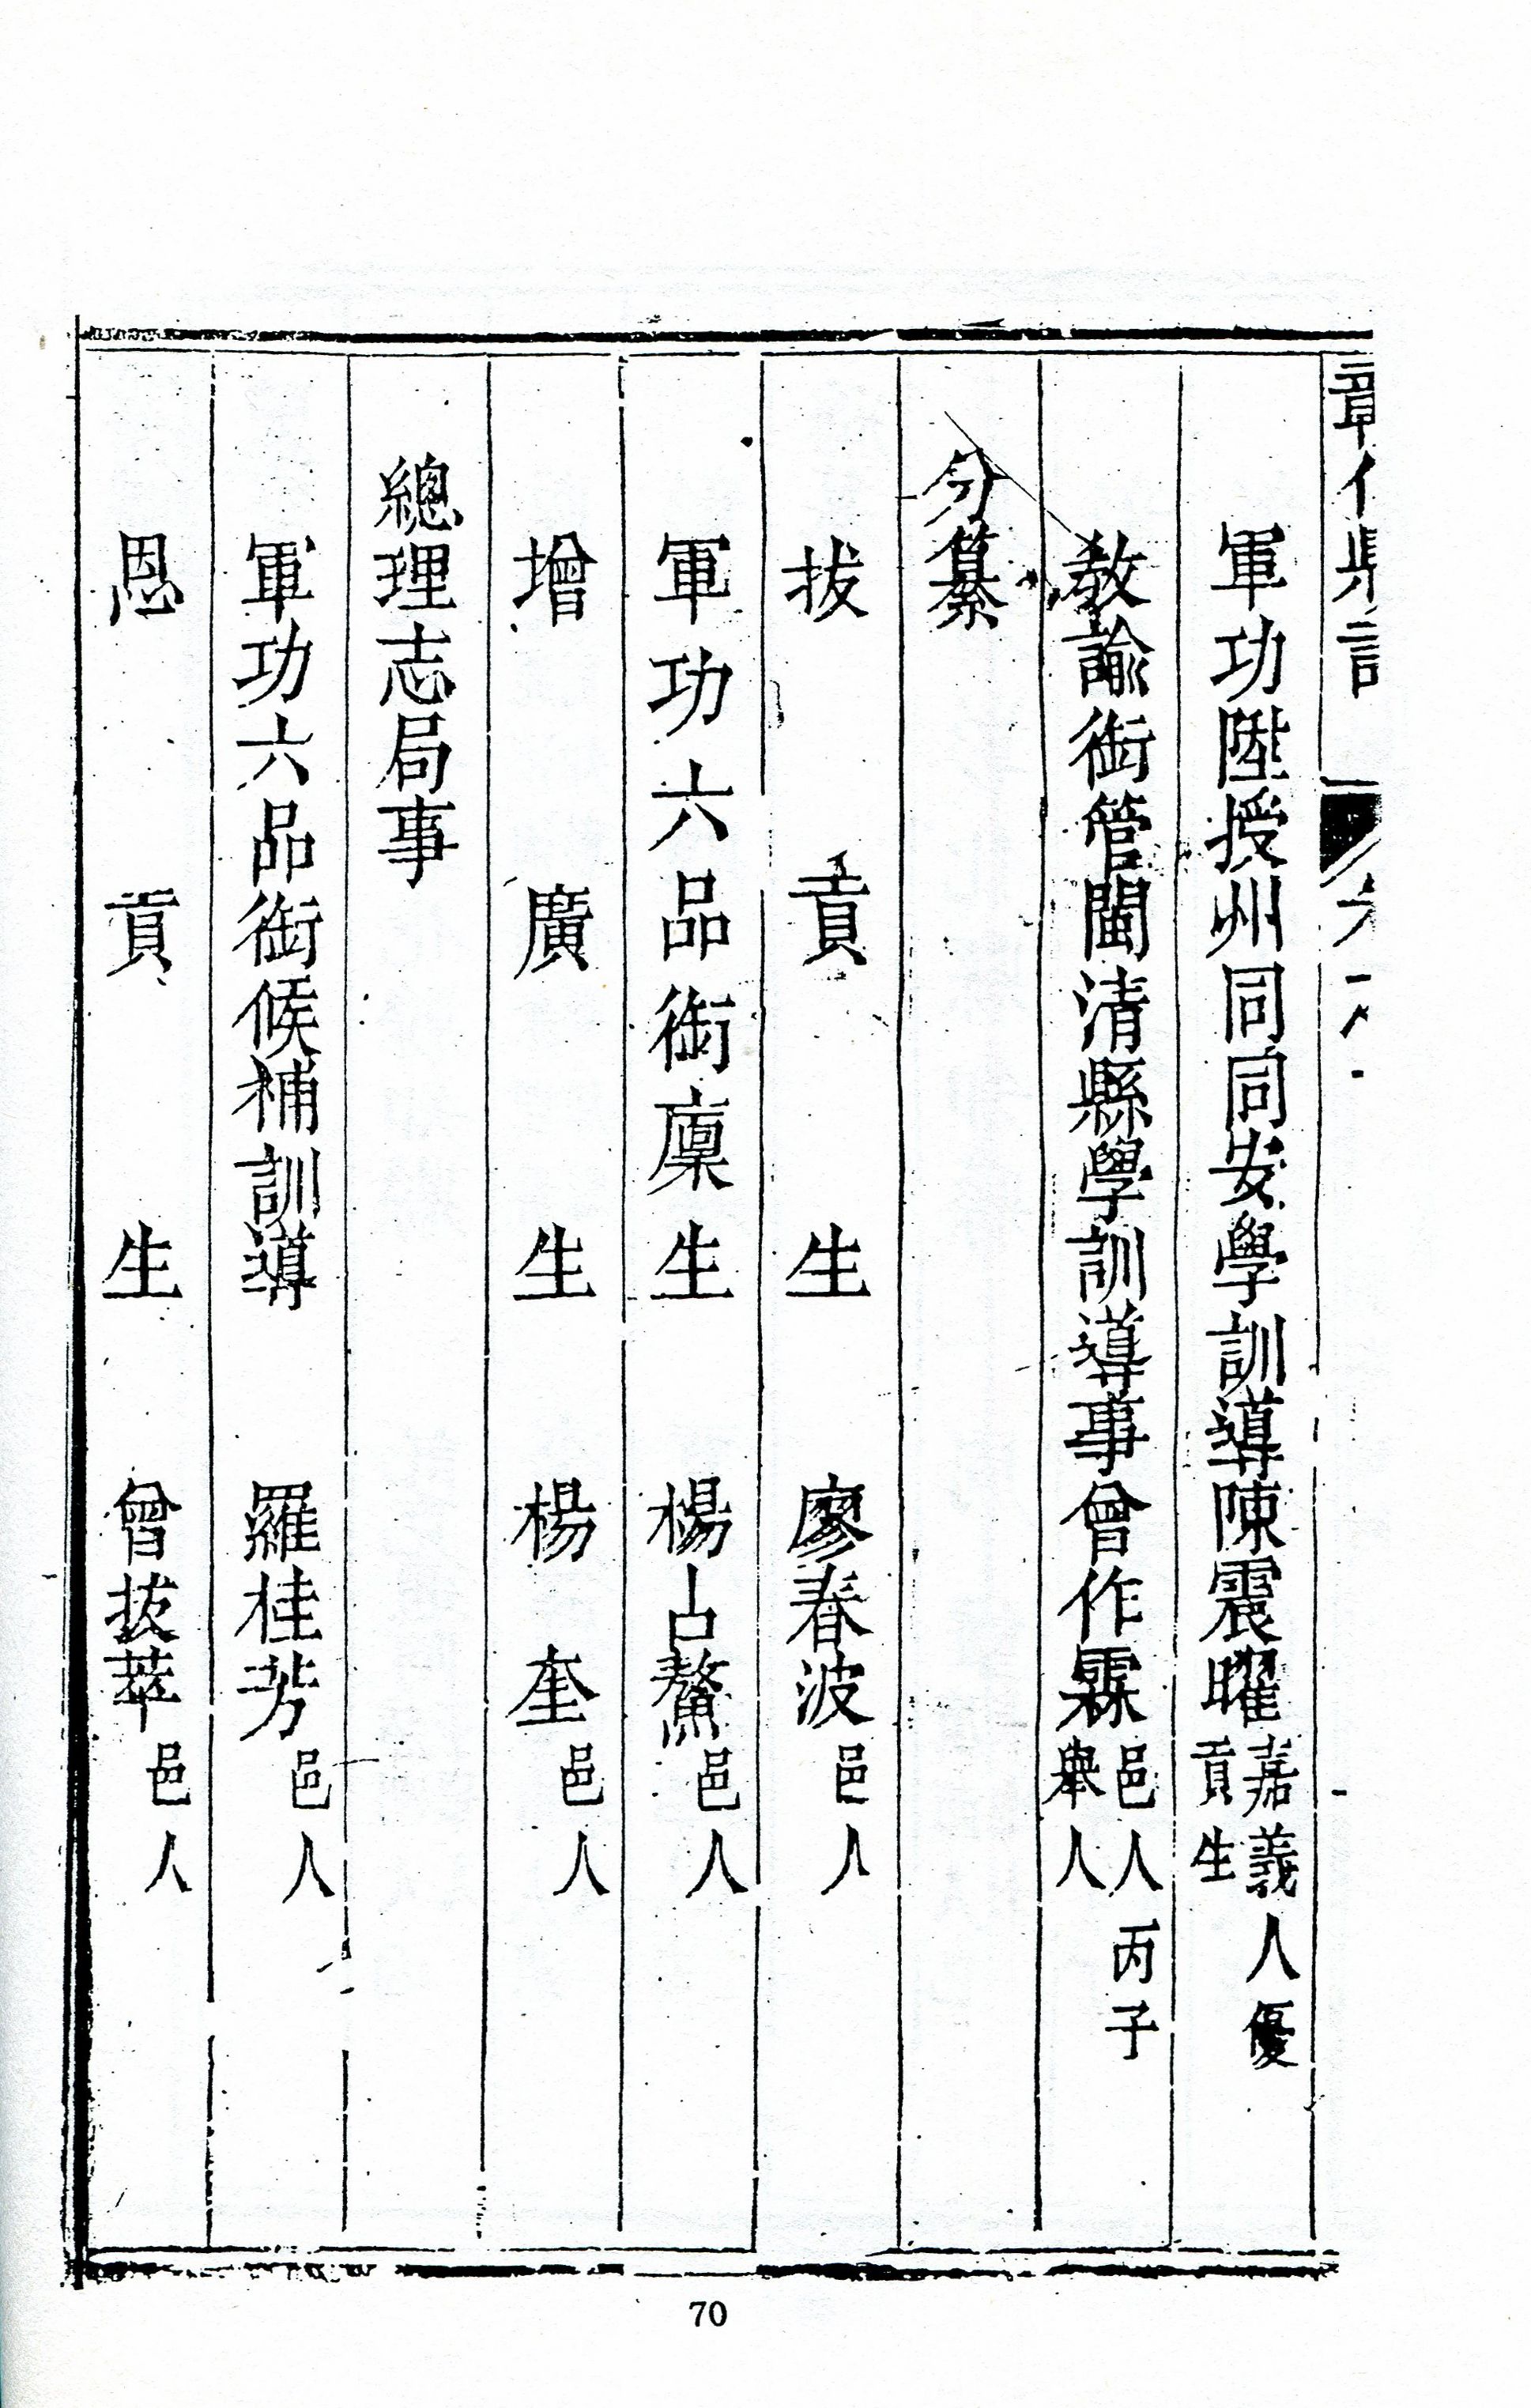 軍功陞授州同同安學訓導陳震曜嘉義人優貢生
教諭銜管閩清縣學訓導事曾作霖邑人丙子舉人
分纂
拔貢生 廖春波邑人
軍功六品銜廩生 楊占鰲邑人
增廣生 楊奎邑人
總理志局事
軍功六品銜候補訓導 羅桂芳邑人
恩貢生 曾拔萃邑人
70